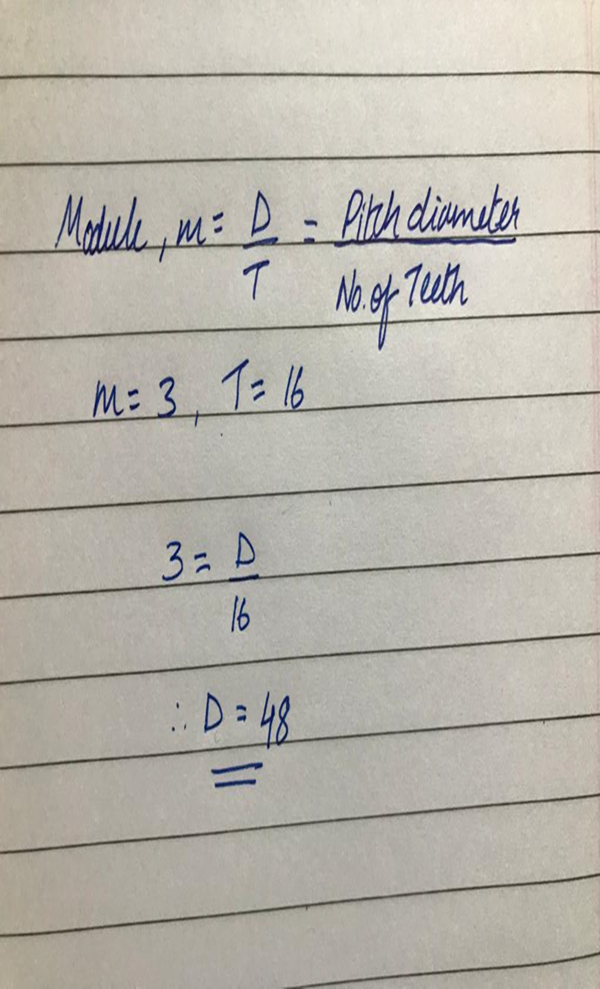 Module, m = D/T = Pitch diameter/No. of Teeth
m = 3, T = 16
3 = D/16
∴ D = 48